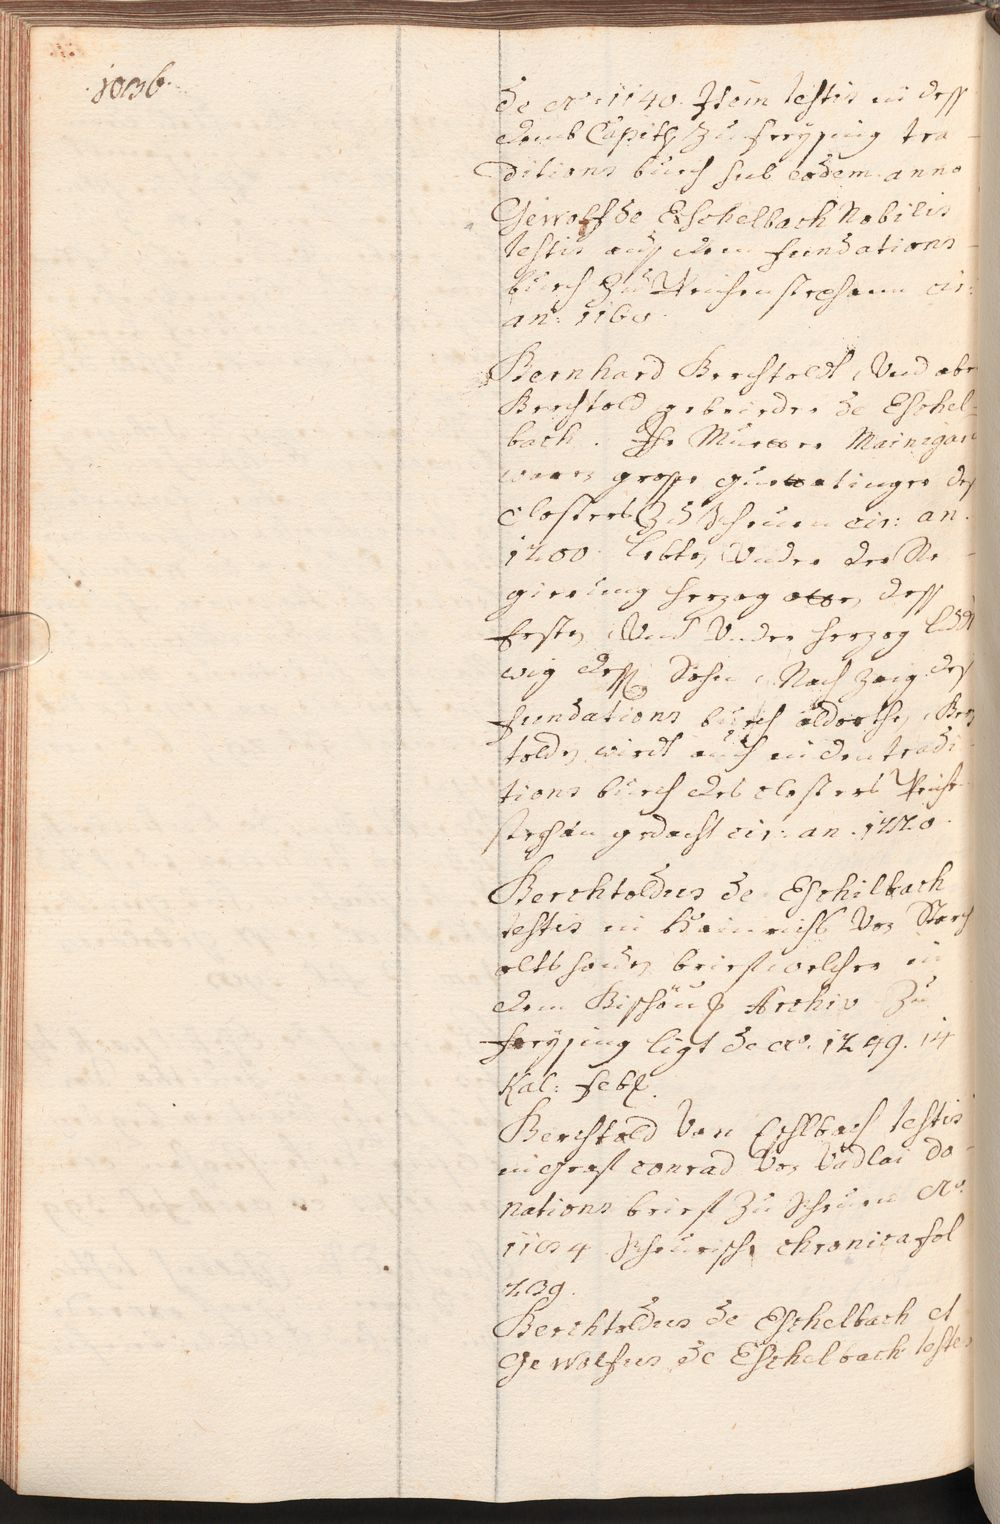 1036.
de Ao. 1140. Item testis in dess
domb Capitls Zu freysing tra
ditions buech sub eodem anno
Gewolf de Eschelbach Nobilis
testis auss dem fundations
buech Zu Weichenstephann cir:
an: 1160.
Bernhard Berchtoldt, Vnd aber
Berchtold gebrieder de Eschel-
bach. Ihr Muetter Mainigart
waren grosse guettatinger des
Closters Zu Scheurn cir: an.
1200. lebten Vnder der Re
gierung herzog otten dess
Ersten, Vnd Vnder herzog Lud
wig dess Sohn, Nach Zaig des
fundations buech aldorthen, Ber
tolde wirdt auch in den tradi
tions buech des closters Weichen
stephan gedacht cir: an. 1220.
Berchtoldus de Eschilbach
testis in Hainrichs Von Starch
oltshouen brief welcher in
dem Bischöufl Archiv Zu
freysing ligt de Ao. 1249. 14
Kal: febr.
Berchtold Von Eschlbach testis
in Graf Conrad Von Vadlai do
nations brief Zu Scheurn Ao.
1134 Scheurische chronica fol
239.
Berchtoldus de Eschelbach et
Gewolfus de Eschelbach testes